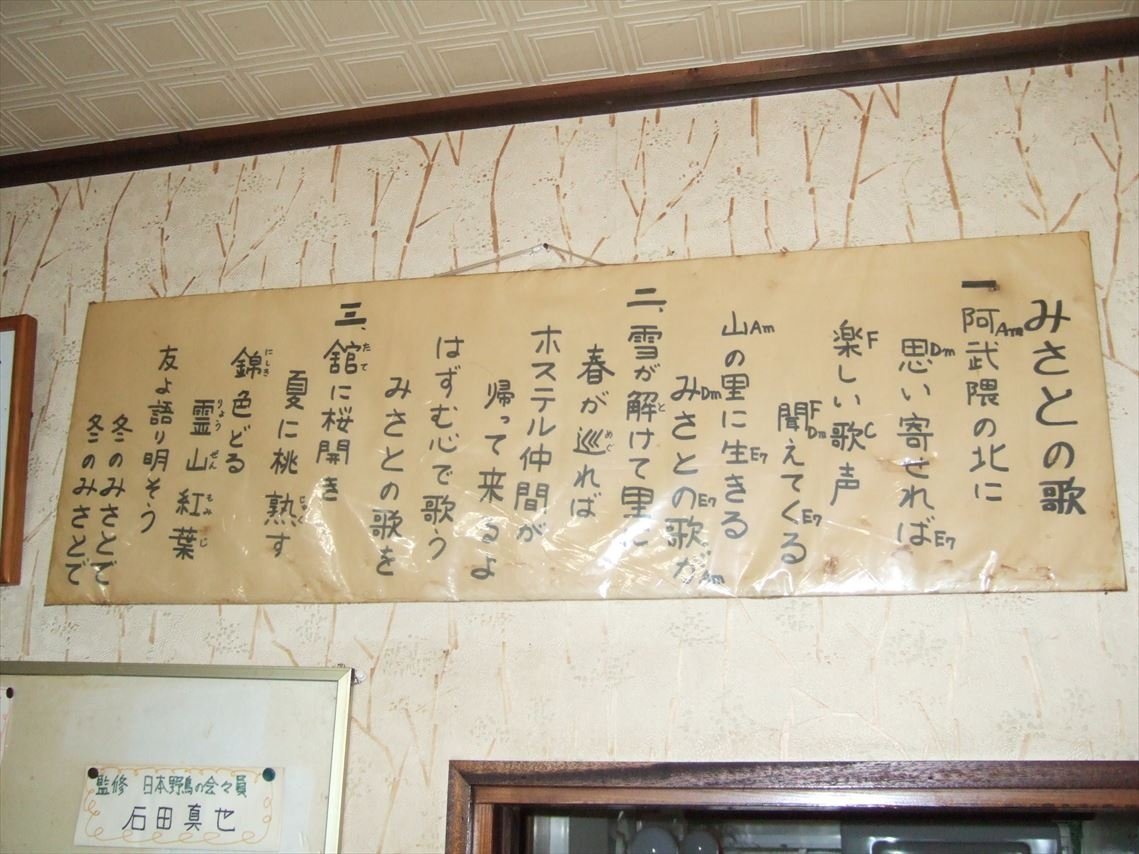 みさとの歌
一阿武隈の北に
Am
思い寄せれば
Dm E7
楽しい歌声
F C
聞えてくる
F Dm E7
山の里に生きる
Am E7
みさとの歌が
Dm E7 Am
二、雪が解けて里に
と
春が巡れば
めぐ
ホステル仲間が
帰って来るよ
はずむ心で歌う
みさとの歌を
三、舘に桜開き
たて
夏に桃熟す
じゅく
錦色どる
にしき
霊山紅葉
りょうぜんもみじ
友よ語り明そう
冬のみさとで
冬のみさとで
監修 日本野鳥の会々員
石田真也